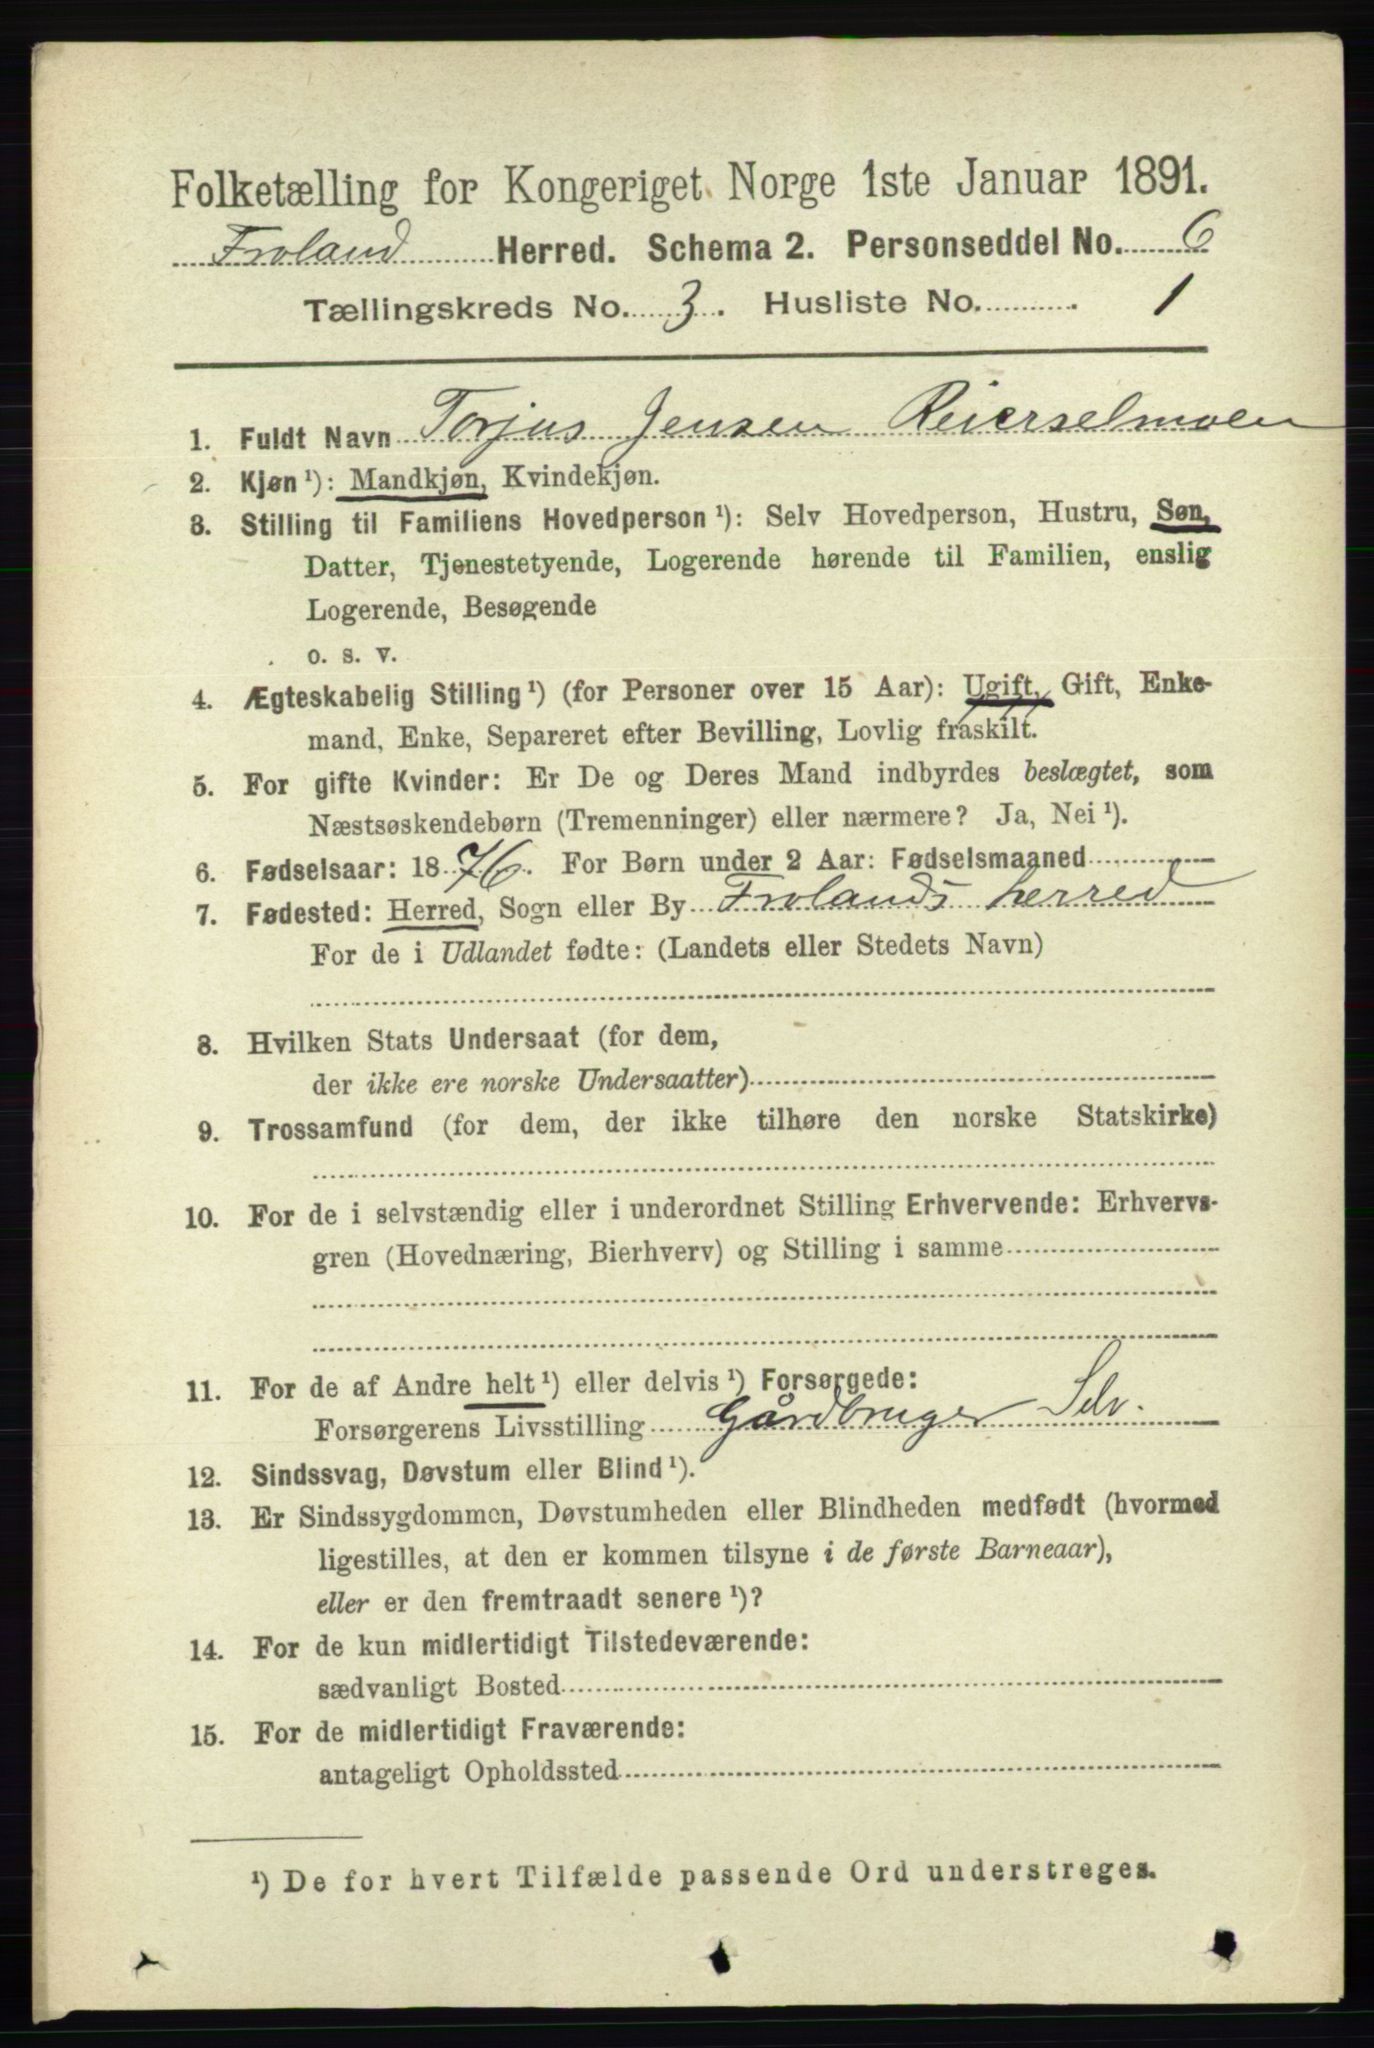 Folketælling for Kongeriget Norge 1ste Januar 1891.
Froland Herred. Schema 2. Personseddel No. 6
Tællingskreds No. 3. Husliste No. 1
1. Fuldt Navn Torjus Jensen Reierselmoen
2. Kjøn ¹): Mandkjøn, Kvindekjøn.
3. Stilling til Familiens Hovedperson ¹): Selv Hovedperson, Hustru, Søn,
Datter, Tjenestetyende, Logerende hørende til Familien, enslig
Logerende, Besøgende
o. s. v.
4. Ægteskabelig Stilling ¹) (for Personer over 15 Aar): Ugift, Gift, Enke-
mand, Enke, Separeret efter Bevilling, Lovlig fraskilt.
5. For gifte Kvinder: Er De og Deres Mand indbyrdes beslægtet, som
Næstsøskendebørn (Tremenninger) eller nærmere? Ja, Nei ¹).
6. Fødselsaar: 1876. For Børn under 2 Aar: Fødselsmaaned
7. Fødested: Herred, Sogn eller By Frolands herred
For de i Udlandet fødte: (Landets eller Stedets Navn)
8. Hvilken Stats Undersaat (for dem,
der ikke ere norske Undersaatter)
9. Trossamfund (for dem, der ikke tilhøre den norske Statskirke)
10. For de i selvstændig eller i underordnet Stilling Erhvervende: Erhvervs-
gren (Hovednæring, Bierhverv) og Stilling i samme
11. For de af Andre helt ¹) eller delvis ¹) Forsørgede:
Forsørgerens Livsstilling Gårdbruger Selv.
12. Sindssvag, Døvstum eller Blind ¹).
13. Er Sindssygdommen, Døvstumheden eller Blindheden medfødt (hvormed
ligestilles, at den er kommen tilsyne i de første Barneaar),
eller er den fremtraadt senere ¹)?
14. For de kun midlertidigt Tilstedeværende:
sædvanligt Bosted
15. For de midlertidigt Fraværende:
antageligt Opholdssted
¹) De for hvert Tilfælde passende Ord understreges.